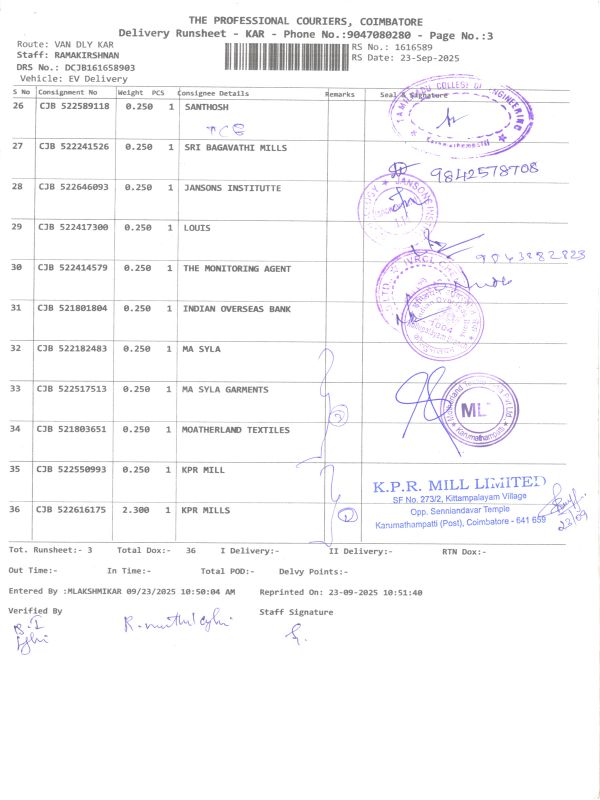 THE PROFESSIONAL COURIERS, COIMBATORE
Delivery Runsheet - KAR - Phone No.:9047080280 - Page No.:3
Route: VAN DLY KAR
RS No.: 1616589
Staff: RAMAKIRSHNAN
RS Date: 23-Sep-2025
DRS No.: DCJB161658903
Vehicle: EV Delivery
S No Consignment No Weight PCS Consignee Details Remarks Seal & Signature
26 CJB 522589118 0.250 1 SANTHOSH
TCE
27 CJB 522241526 0.250 1 SRI BAGAVATHI MILLS
9842578708
28 CJB 522646093 0.250 1 JANSONS INSTITUTTE
29 CJB 522417300 0.250 1 LOUIS
9843882823
30 CJB 522414579 0.250 1 THE MONITORING AGENT
31 CJB 521801804 0.250 1 INDIAN OVERSEAS BANK
32 CJB 522182483 0.250 1 MA SYLA
33 CJB 522517513 0.250 1 MA SYLA GARMENTS
ML
Karumathampatti
34 CJB 521803651 0.250 1 MOATHERLAND TEXTILES
35 CJB 522550993 0.250 1 KPR MILL
K.P.R. MILL LIMITED
SF No. 273/2, Kittampalayam Village
Opp. Senniandavar Temple
Karumathampatti (Post), Coimbatore - 641 659
23/09
36 CJB 522616175 2.300 1 KPR MILLS
Tot. Runsheet:- 3 Total Dox:- 36 I Delivery:- II Delivery:- RTN Dox:-
Out Time:- In Time:- Total POD:- Delvy Points:-
Entered By :MLAKSHMIKAR 09/23/2025 10:50:04 AM Reprinted On: 23-09-2025 10:51:40
Verified By Staff Signature